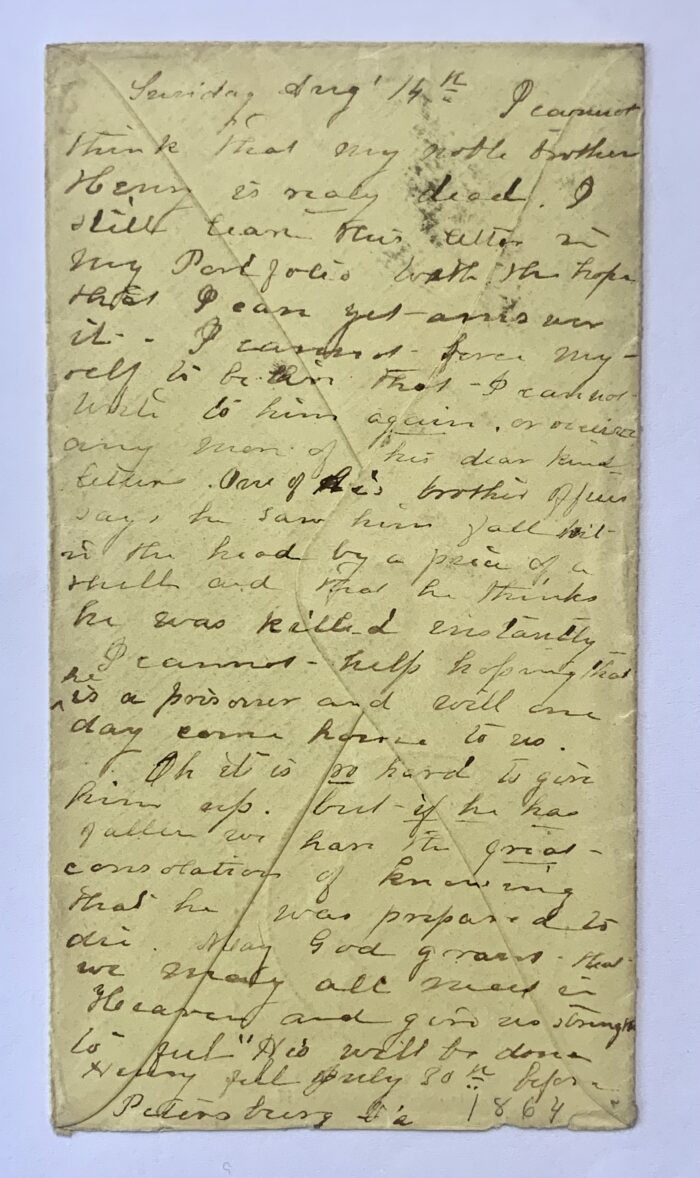 Sunday Aug' 14th I cannot
think that my noble brother
Henry is realy dead. I
still leave this letter in
my Portfolio with the hope
that I can yet answer
it - I cannot force my-
self to believe that - I cannot
write to him again, or receive
any more of his dear kind
letters. One of his brother officers
says he saw him fall hit
in the head by a peice of a
shell and that he thinks
he was killed instantly
I cannot help hoping that
he
is a prisoner and will one
day come home to us.
Oh it is so hard to give
him up. but if he has
fallen we have the great
consolation of knowing
that he was prepared to
die. May God grant that
we may all meet in
Heaven and give us strength
to feel "His will be done
Henry fell July 30th before
Petersburg Va 1864